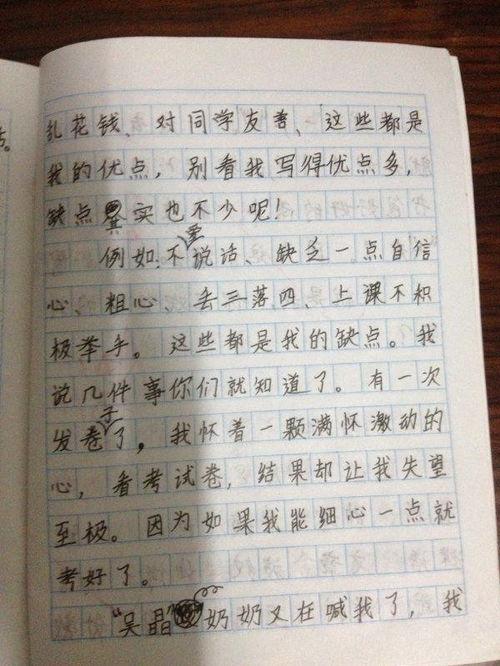 乱花钱、对同学友善、这些都是
我的优点，别看我写得优点多，
缺点其实也不少呢！
例如.不爱说话、缺乏一点自信
心、粗心、丢三落四、上课不积
极举手。这些都是我的缺点。我
说几件事你们就知道了。有一次
发卷子了，我怀着一颗满怀激动的
心，看考试卷，结果却让我失望
至极。因为如果我能细心一点就
考好了。
“吴晶”奶奶又在喊我了，我